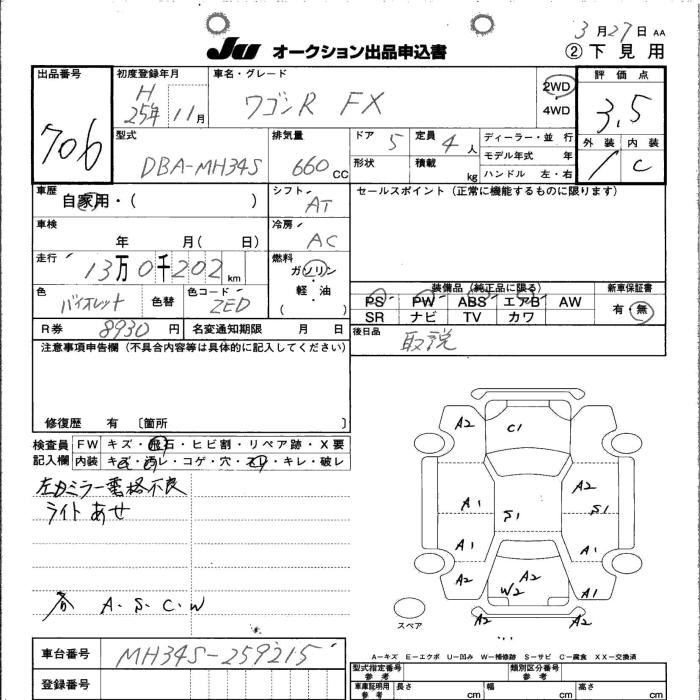 3月27日 AA
JU オークション出品申込書 ②下見用
出品番号 706
初度登録年月 H 25年 11月
車名・グレード ワゴンR FX
2WD
4WD
評価点 3.5
外装 内装 C
型式 DBA-MH34S
排気量 660 CC
ドア 5 定員 4人
形状 積載 kg
ディーラー・並 行
モデル年式 年
ハンドル 左・右
車歴 自家用・( )
シフト AT
セールスポイント(正常に機能するものに限ります)
車検 年 月( 日)
冷房 AC
走行 13万0千202km
燃料 ガソリン
軽・油
( )
色 バイオレット 色替 色コード ZED
装備品(純正品に限る) 新車保証書
PS PW ABS エアB AW 有・無
SR ナビ TV カワ
R券 8930円 名変通知期限 月 日
後日品 取説
注意事項申告欄(不具合内容等は具体的に記入してください)
修復歴 有 〔箇所 〕
検査員 FW キズ・飛石・ヒビ割・リペア跡・X要
記入欄 内装 キズ・汚レ・コゲ・穴・スリ・キレ・破レ
ライトあせ
A.S.C.W
A2 C1 A2
A1 S1 A2 S1
A1 A1
A2 W2 A2 A1
A2 A2
スペア
A-キズ E-エクボ U-凹み W-補修跡 S-サビ C-腐食 XX-交換済
車台番号 MH34S-259215
登録番号
型式指定番号 参考 類別区分番号 参考
車庫証明用 参考 長さ cm 幅 cm 高さ cm